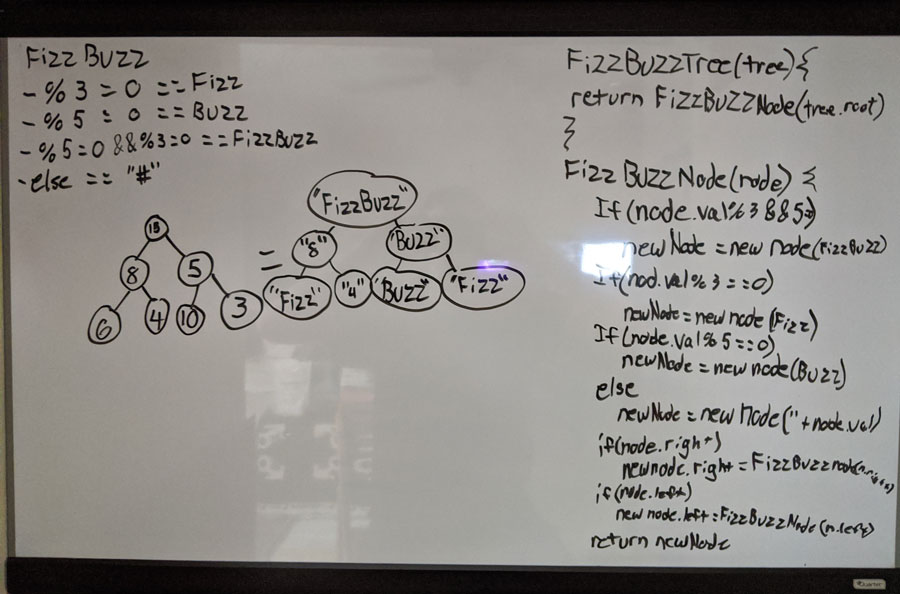 FizzBuzz
- % 3 = 0 == Fizz
- % 5 = 0 == Buzz
- % 5=0 &&%3=0 ==FizzBuzz
- else == "#"
15
8
5
6
4
10
3
=
"FizzBuzz"
"8"
"Buzz"
"Fizz"
"4"
"Buzz"
"Fizz"
FizzBuzzTree(tree){
return FizzBuzzNode(tree.root)
}
FizzBuzzNode(node) {
If(node.val%3&&5=)
newNode = new node(FizzBuzz)
If(nod.val%3==0)
newNode=new node(Fizz)
If(node.val%5==0)
newNode = new node(Buzz)
else
newNode = new node(''+node.val)
if(node.right)
newnode.right=FizzBuzznode(n.right)
if(node.left)
new node.left=FizzBuzzNode(n.left)
return newNode
Quartet